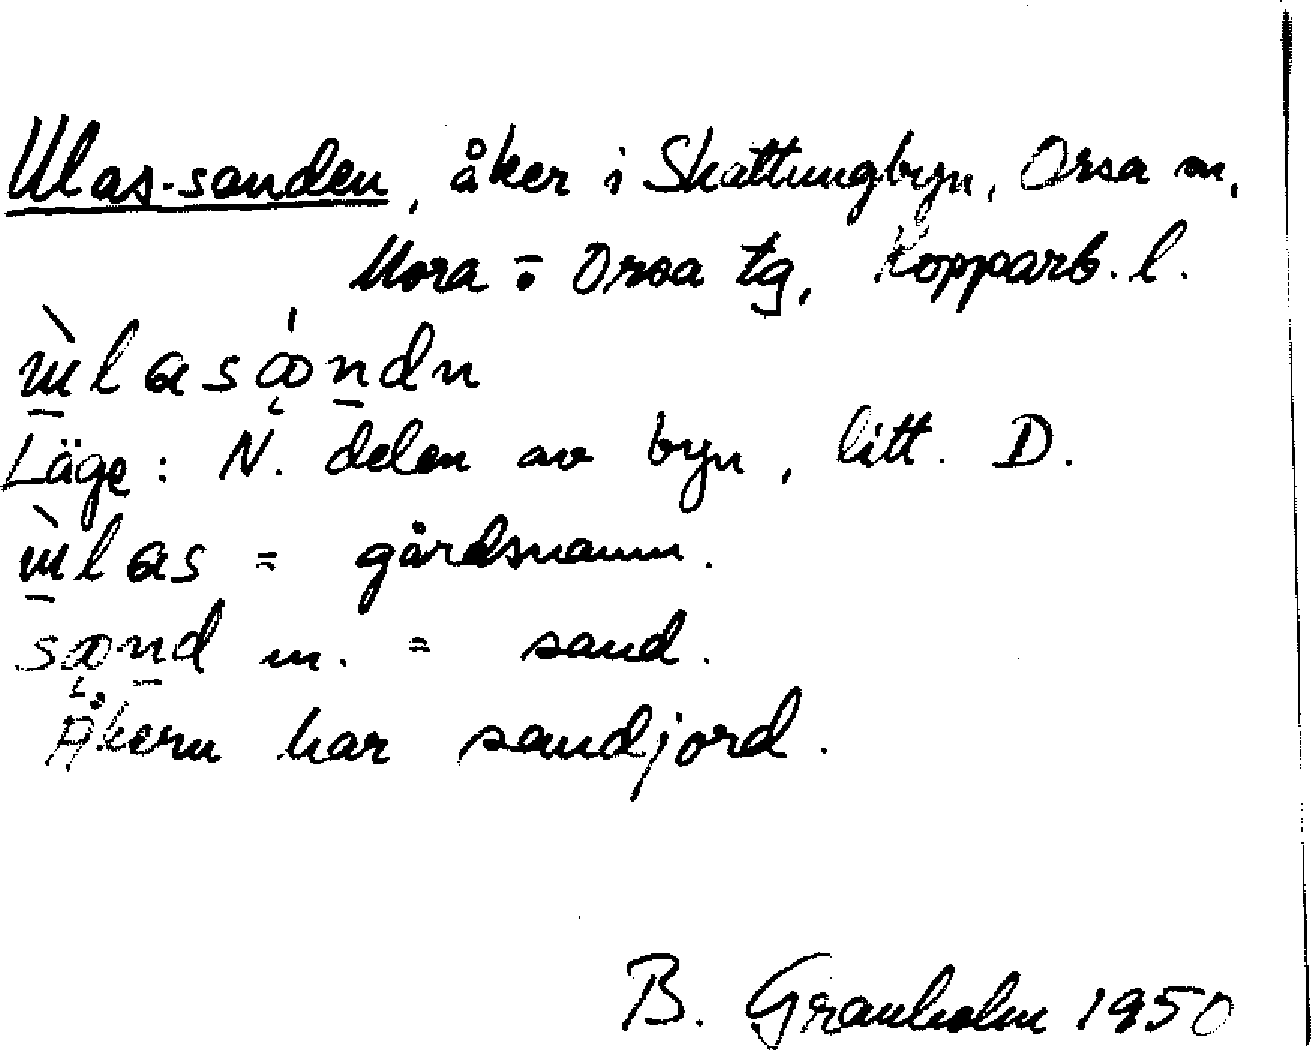 Ulas-sanden, åker i Skattungbyn, Orsa sn,
Mora o. Orsa tg, Kopparb. l.
Läge: N. delen av byn, litt. D.
= gårdsnamn.
m. = sand.
Åkern har sandjord.
B. Granholm 1950